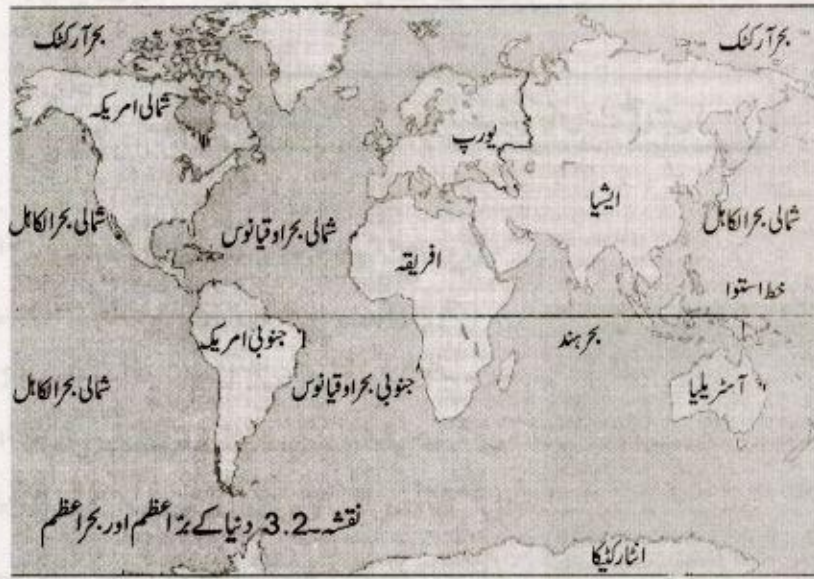 بحر آرکٹک
بحر آرکٹک
شمالی امریکہ
یورپ
ایشیا
شمالی بحر الکاہل
شمالی بحر اوقیانوس
شمالی بحر الکاہل
افریقہ
خط استوا
جنوبی امریکہ
بحر ہند
شمالی بحر الکاہل
جنوبی بحر اوقیانوس
آسٹریلیا
نقشہ۔3.2 دنیا کے برّ اعظم اور بحر اعظم
انٹارکٹیکا